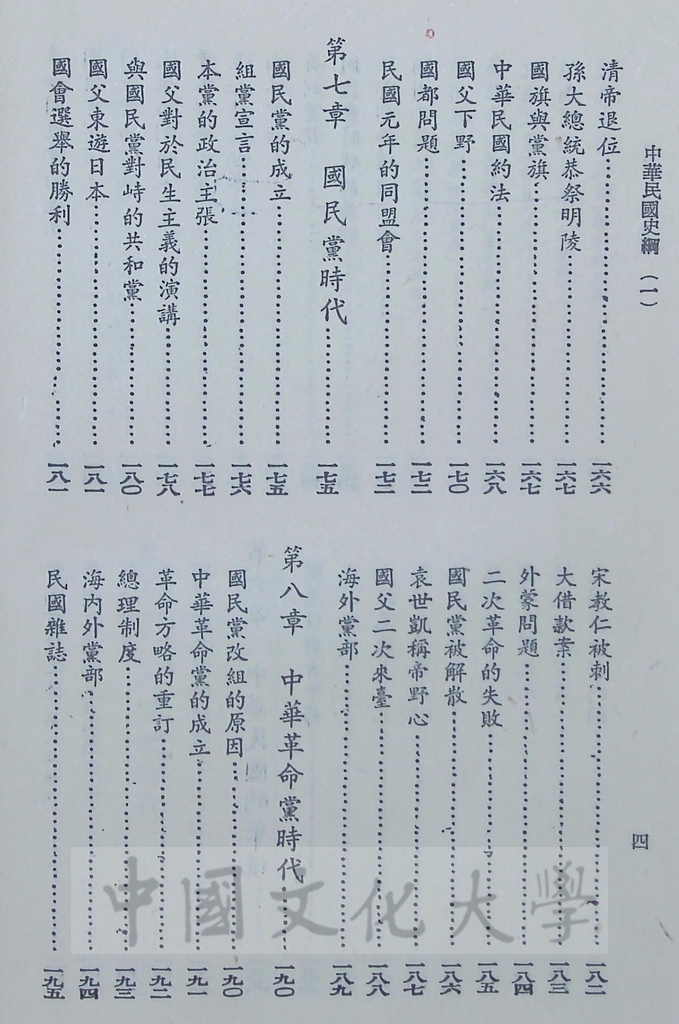 中華民國史綱（一）
清帝退位⋯⋯⋯⋯一六六
孫大總統恭祭明陵⋯⋯⋯⋯一六七
國旗與黨旗⋯⋯⋯⋯一六七
中華民國約法⋯⋯⋯⋯一六八
國父下野⋯⋯⋯⋯一七〇
國都問題⋯⋯⋯⋯一七二
民國元年的同盟會⋯⋯⋯⋯一七二
第七章　國民黨時代⋯⋯⋯⋯一七五
國民黨的成立⋯⋯⋯⋯一七五
組黨宣言⋯⋯⋯⋯一七六
本黨的政治主張⋯⋯⋯⋯一七七
國父對於民生主義的演講⋯⋯⋯⋯一七八
與國民黨對峙的共和黨⋯⋯⋯⋯一八〇
國父東遊日本⋯⋯⋯⋯一八一
國會選舉的勝利⋯⋯⋯⋯一八一
宋教仁被刺⋯⋯⋯⋯一八二
大借款案⋯⋯⋯⋯一八三
外蒙問題⋯⋯⋯⋯一八四
二次革命的失敗⋯⋯⋯⋯一八五
國民黨被解散⋯⋯⋯⋯一八六
袁世凱稱帝野心⋯⋯⋯⋯一八七
國父二次來臺⋯⋯⋯⋯一八八
海外黨部⋯⋯⋯⋯一八九
第八章　中華革命黨時代⋯⋯⋯⋯一九〇
國民黨改組的原因⋯⋯⋯⋯一九〇
中華革命黨的成立⋯⋯⋯⋯一九一
革命方略的重訂⋯⋯⋯⋯一九二
總理制度⋯⋯⋯⋯一九三
海內外黨部⋯⋯⋯⋯一九四
民國雜誌⋯⋯⋯⋯一九五
四
中國文化大學